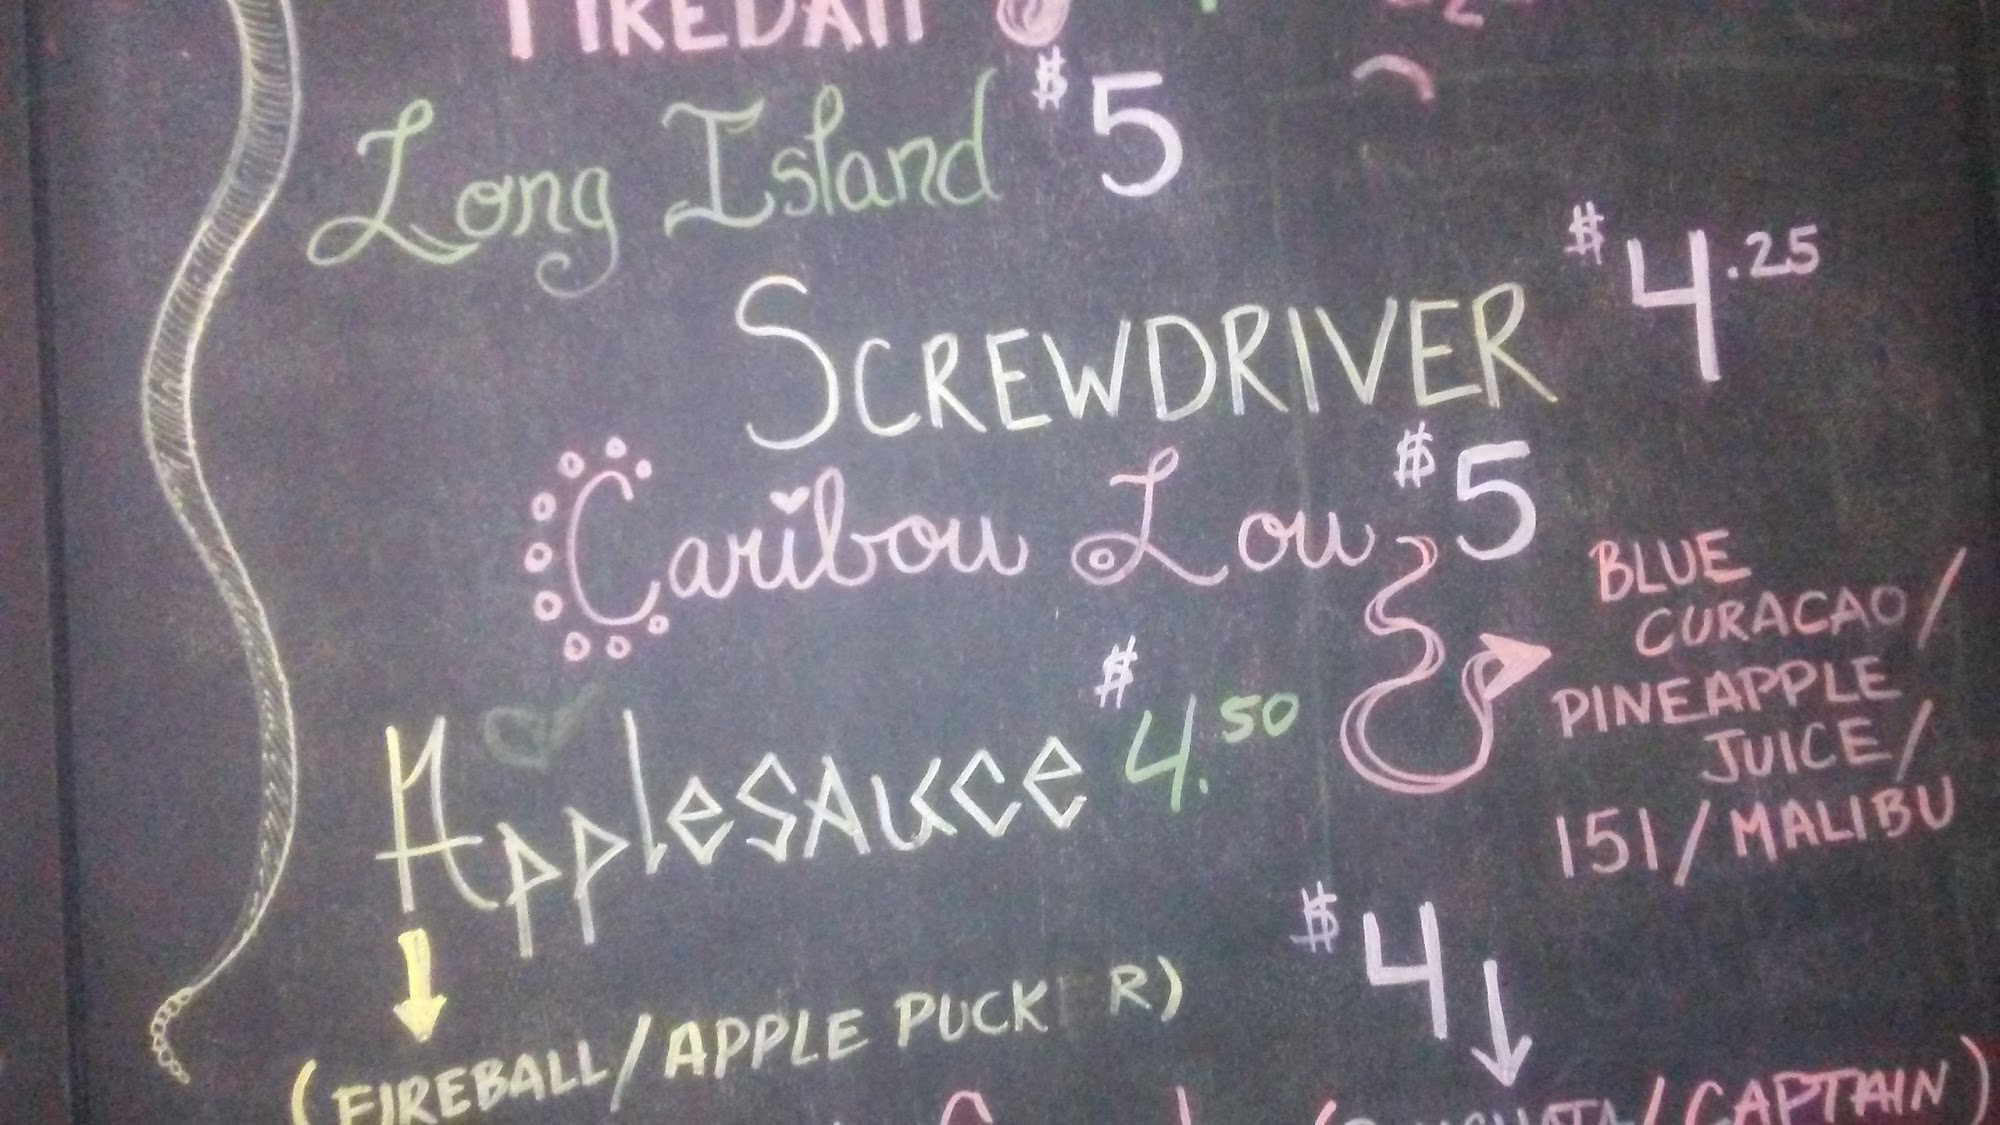 Long Island $5
SCREWDRIVER $4.25
Caribou Lou $5
BLUE
CURACAO/
PINEAPPLE
JUICE/
151/MALIBU
Applesauce $4.50
(FIREBALL/APPLE PUCK R)
$4
/CAPTAIN)